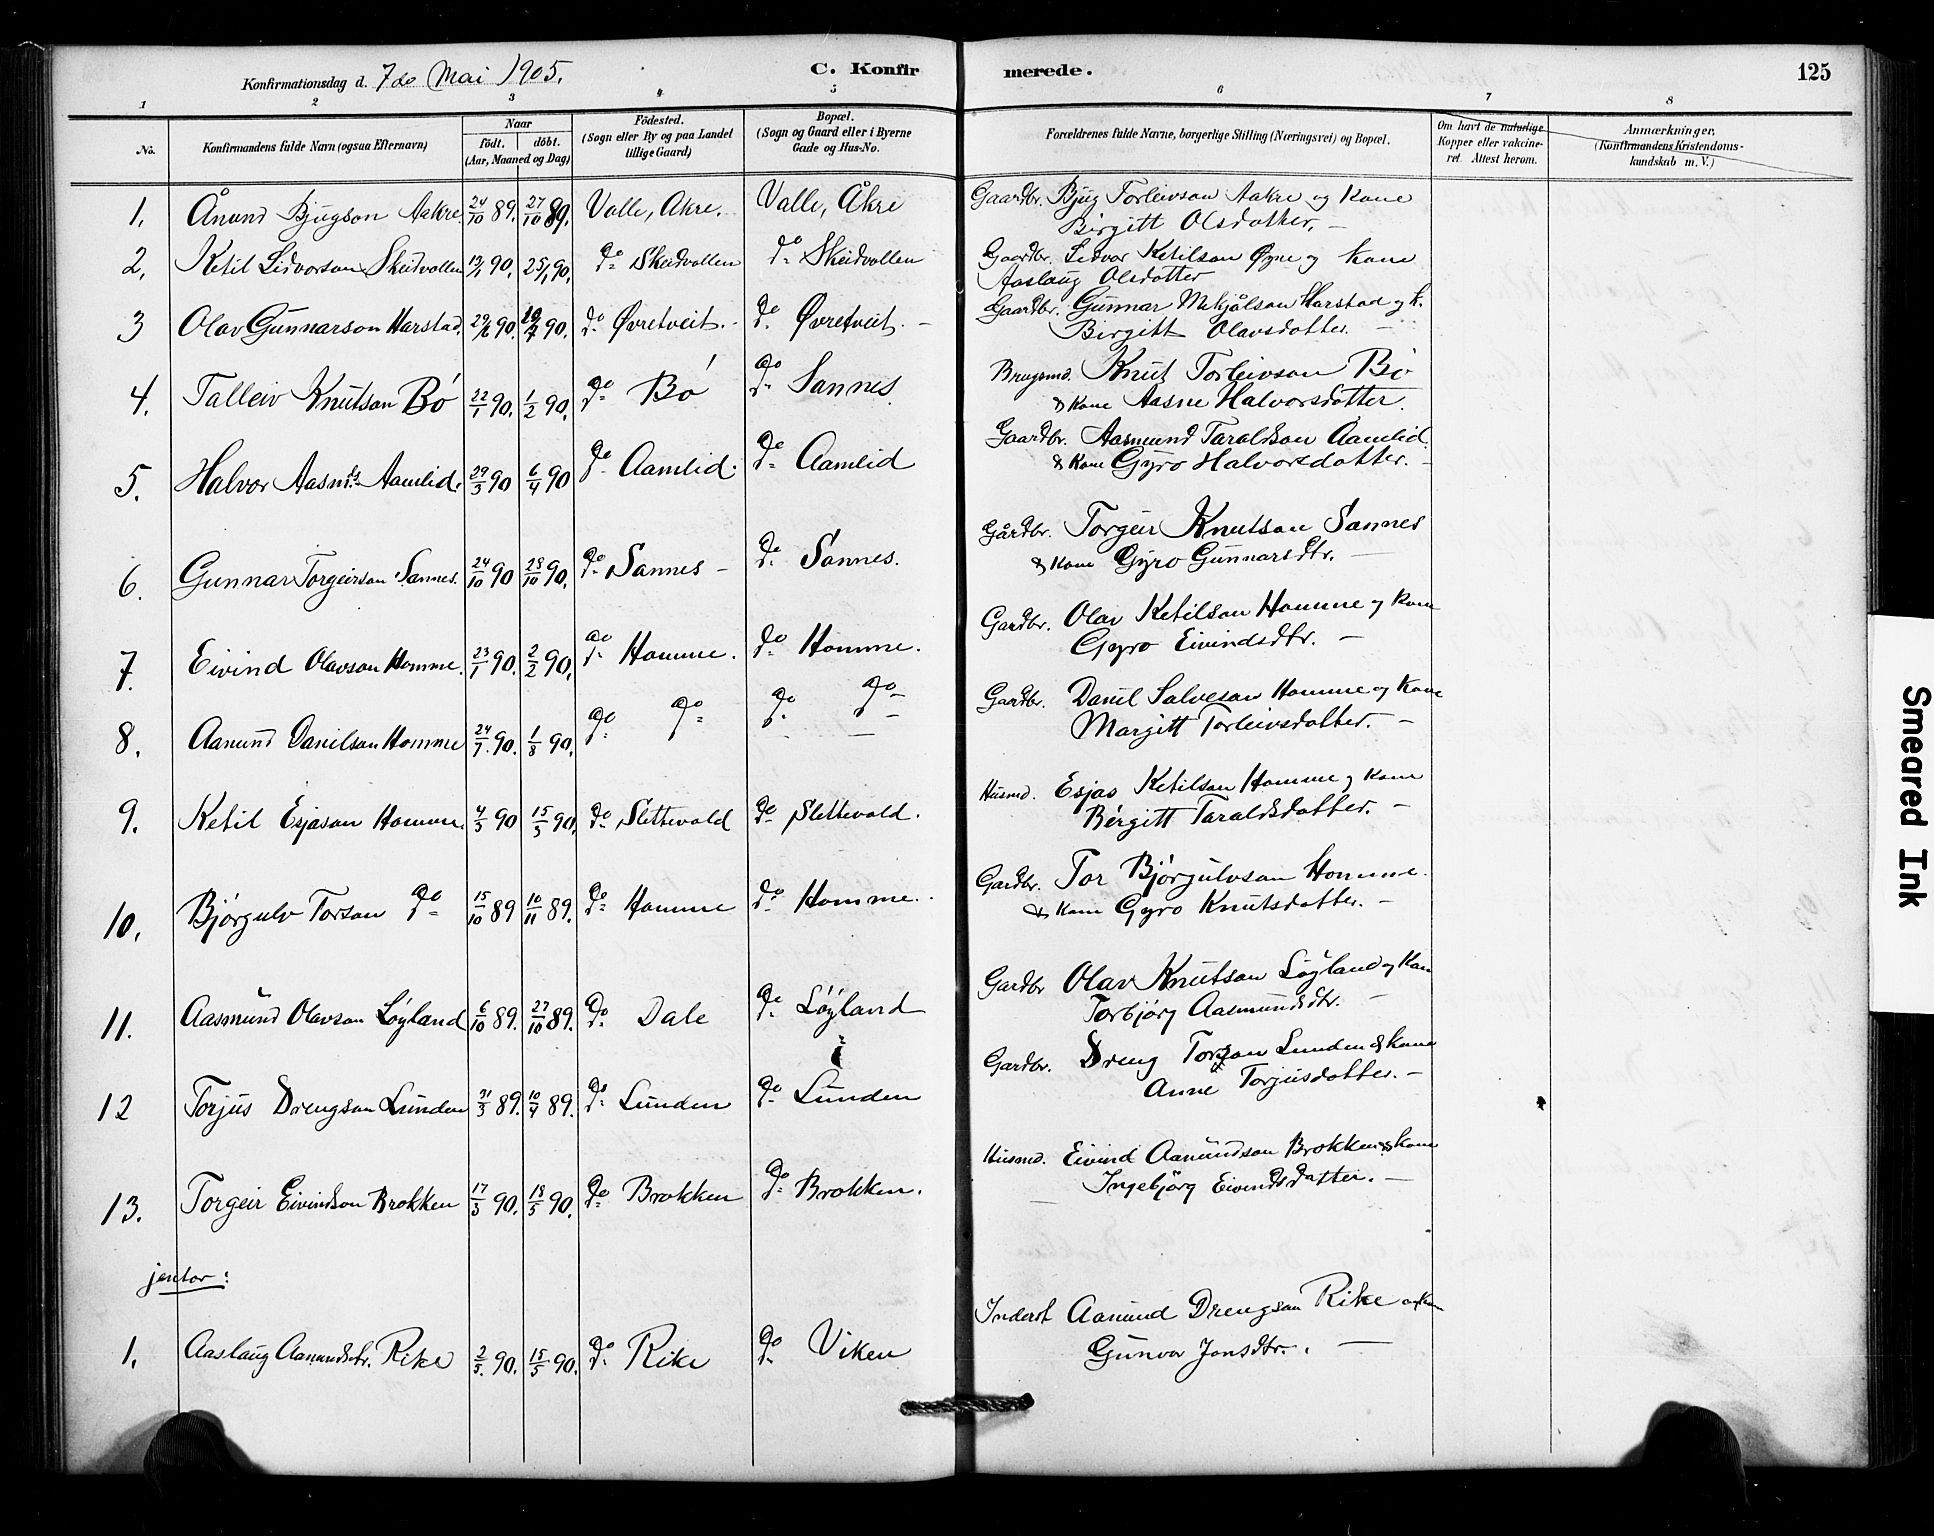 Konfirmationsdag d. 7de Mai 1905.
C. Konfirmerede.
125
1 2 3 4 5 6 7 8
No.
Konfirmandens fulde Navn (ogsaa Efternavn)
Naar
født. døbt.
(Aar, Maaned og Dag)
Födested.
(Sogn eller By og paa Landet
tillige Gaard)
Bopæl.
(Sogn og Gaard eller i Byerne
Gade og Hus-No.
Forældrenes fulde Navne, borgerlige Stilling (Næringsvei) og Bopæl.
Om havt de naturlige
Kopper eller vakcine-
ret. Attest herom.
Anmærkninger.
(Konfirmandens Kristendoms-
kundskab m. V.)
1. Ånund Bjugson Aakre. 24/10 89. 27/10 89. Valle, Akre. Valle, Åkre Gaardbr. Bjug Torleivson Aakre og Kone
Birgitt Olsdotter. –
2. Ketil Lidvorson Skeidvollen 13/1 90. 25/1 90. do Skeidvollen do Skeidvollen Gaardbr. Lidvor Ketilson Øyne og Kone
Aaslaug Olsdotter
3 Olav Gunnarson Harstad. 29/6 90. 90. do Øvretveit. – do Øvretveit. – Gaardbr. Gunnar Mikjålson Harstad og k.
Birgitt Olavsdotter. –
4. Talleiv Knutson Bö 22/1 90. 1/2 90. do Bö do Sannes. Brugsmd. Knut Torleivson Bö
& Kone Aasne Halvorsdotter.
5. Halvor Aasmds. Aamlid. 29/3 90 6/4 90 do Aamlid. do Aamlid Gaardbr. Aasmund Taraldson Aamlid.
& Kone Gyro Halvorsdotter. –
6. Gunnar Torgeirson Sannes. 24/10 90 28/10 90. do Sannes – do Sannes. Gårdbr. Torgeir Knutson Sannes
& Kone Gyro Gunnarsdtr. –
7. Eivind Olavson Homme. 23/1 90. 2/2 90. do Homme. do Homme. Gardbr. Olav Ketilson Homme og Kone
Gyro Eivindsdtr. –
8. Aanund Danilson Homme 24/7 90. 1/8 90. do do do do Gardbr. Danil Salveson Homme og Kone
Margitt Torleivsdotter. –
9. Ketil Esjason Homme. 4/5 90 15/5 90. do Slettevold do Slettevold. Husmd. Esjas Ketilson Homme og Kone
Birgitt Taraldsdotter. –
10. Bjørgulv Torson do 15/10 89 10/11 89. do Homme do Homme. Gardbr. Tor Bjørgulvson Homme.
& Kone Gyro Knutsdotter. –
11. Aasmund Olavson Løyland 6/10 89. 27/10 89. do Dale do Løyland Gardbr Olav Knutson Løyland og Kone
Torbjørg Aasmundsdtr. –
12 Torjus Drengson Lunden 31/3 89. 10/4 89. do Lunden do Lunden Gardbr. Dreng Torson Lunden & Kone
Anne Torjusdotter. –
13. Torgeir Eivindson Brokken 17/3 90. 18/5 90. do Brokken do Brokken. Husmd. Eivind Aanundson Brokken & Kone
Ingebjørg Eivindsdotter. –
jentor:
1. Aaslaug Aanundsdtr. Rike 2/5 90. 15/5 90. do Rike do Viken Inderst Aanund Drengson Rike og Kone
Gunvor Jonsdtr. –
Smeared Ink